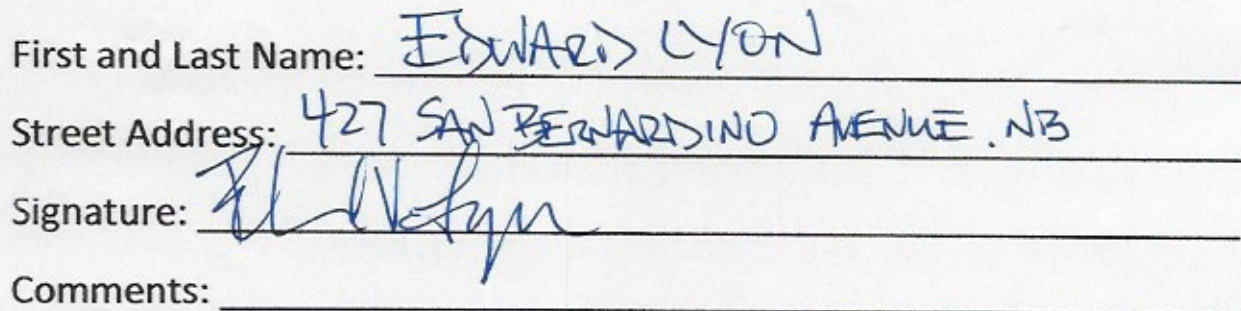 First and Last Name: EDWARD LYON
Street Address: 427 SAN BERNARDINO AVENUE. NB
Signature:
Comments: